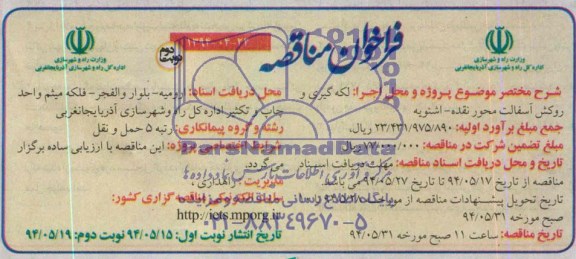 فراخوان مناقصه
نوبت دوم
وزارت راه و شهرسازی
اداره کل راه و شهرسازی آذربایجانغربی
وزارت راه و شهرسازی
اداره کل راه و شهرسازی آذربایجانغربی
شرح مختصر موضوع پروژه و محل اجرا: لکه گیری و
روکش آسفالت محور نقده- اشنویه
جمع مبلغ برآورد اولیه: ۲۳/۴۳۱/۹۷۵/۸۹۰ ریال،
مبلغ تضمین شرکت در مناقصه:
تاریخ و محل دریافت اسناد مناقصه: مهلت دریافت اسناد
مناقصه از تاریخ ۹۴/۰۵/۱۷ تا تاریخ ۹۴/۰۵/۲۷ می باشد.
تاریخ تحویل پیشنهادات مناقصه از مورخه
صبح مورخه ۹۴/۰۵/۳۱
تاریخ مناقصه: ساعت ۱۱ صبح مورخه ۹۴/۰۵/۳۱
محل دریافت اسناد: ارومیه- بلوار والفجر- فلکه میثم واحد
چاپ و تکثیر اداره کل راه وشهرسازی آذربایجانغربی
رشته و گروه پیمانکاری: رتبه ۵ حمل و نقل
شرایط اختصاصی پروژه: این مناقصه با ارزیابی ساده برگزار
می گردد.
مدیریت راهداری ،
مناقصه گزاری کشور:
http://iets.mporg.ir
تاریخ انتشار نوبت اول: ۹۴/۰۵/۱۵ نوبت دوم: ۹۴/۰۵/۱۹
ParsNamadData
۰۲۱-۸۸۳۴۹۶۷۰-۵